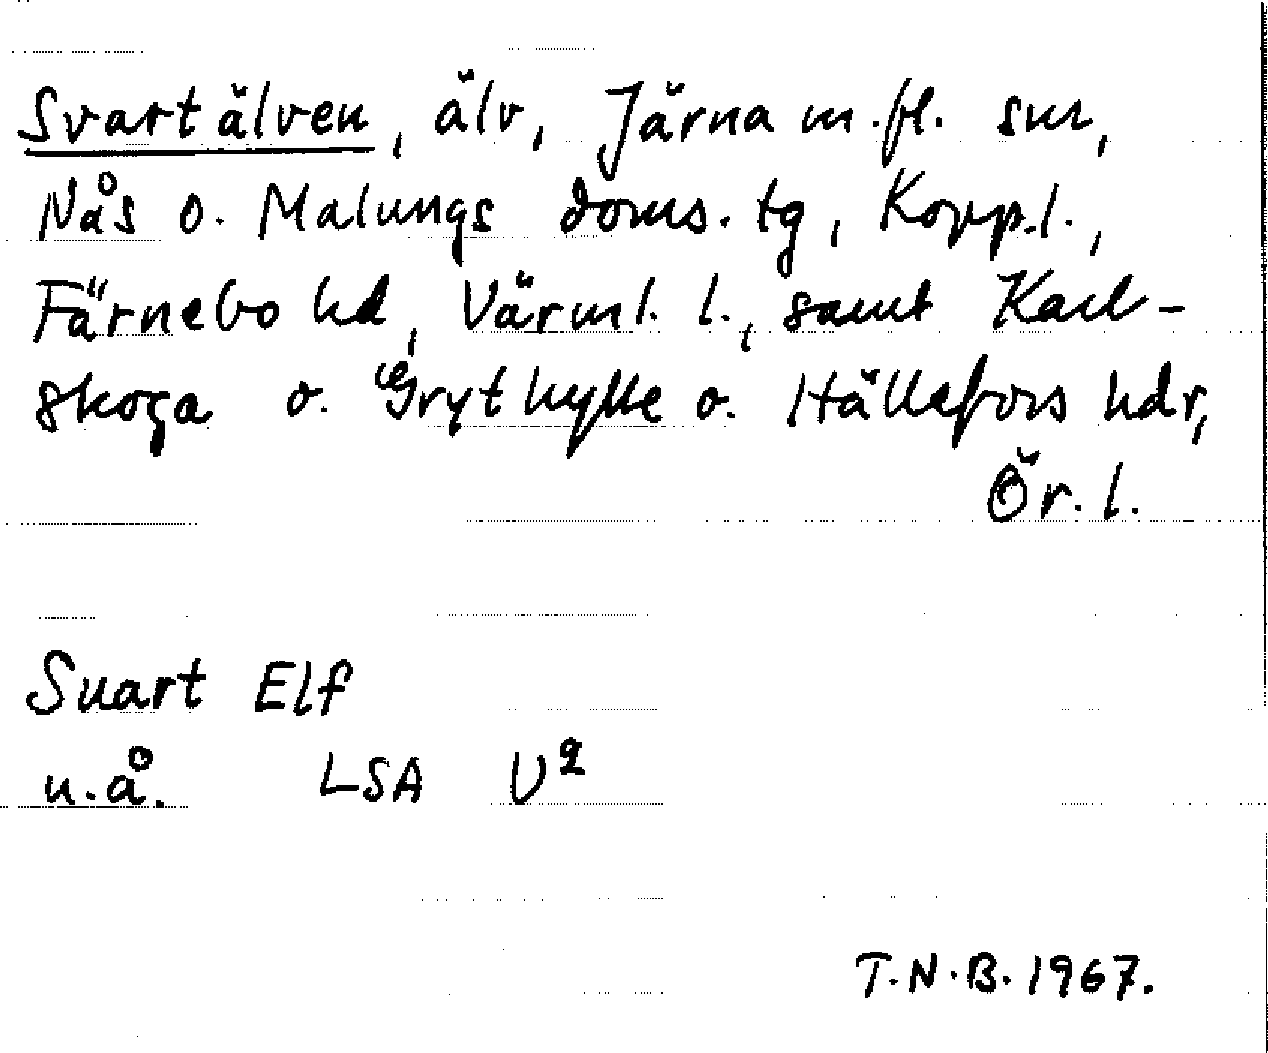 Svartälven, älv, Järna m.fl. snr,
Nås o. Malungs doms.tg, Kopp.l.,
Färnebo hd, Värml. l., samt Karl-
skoga o. Grythytte o. Hällefors hdr,
Ör. l.
Suart Elf
u.å. LSA U²
T.N.B. 1967.